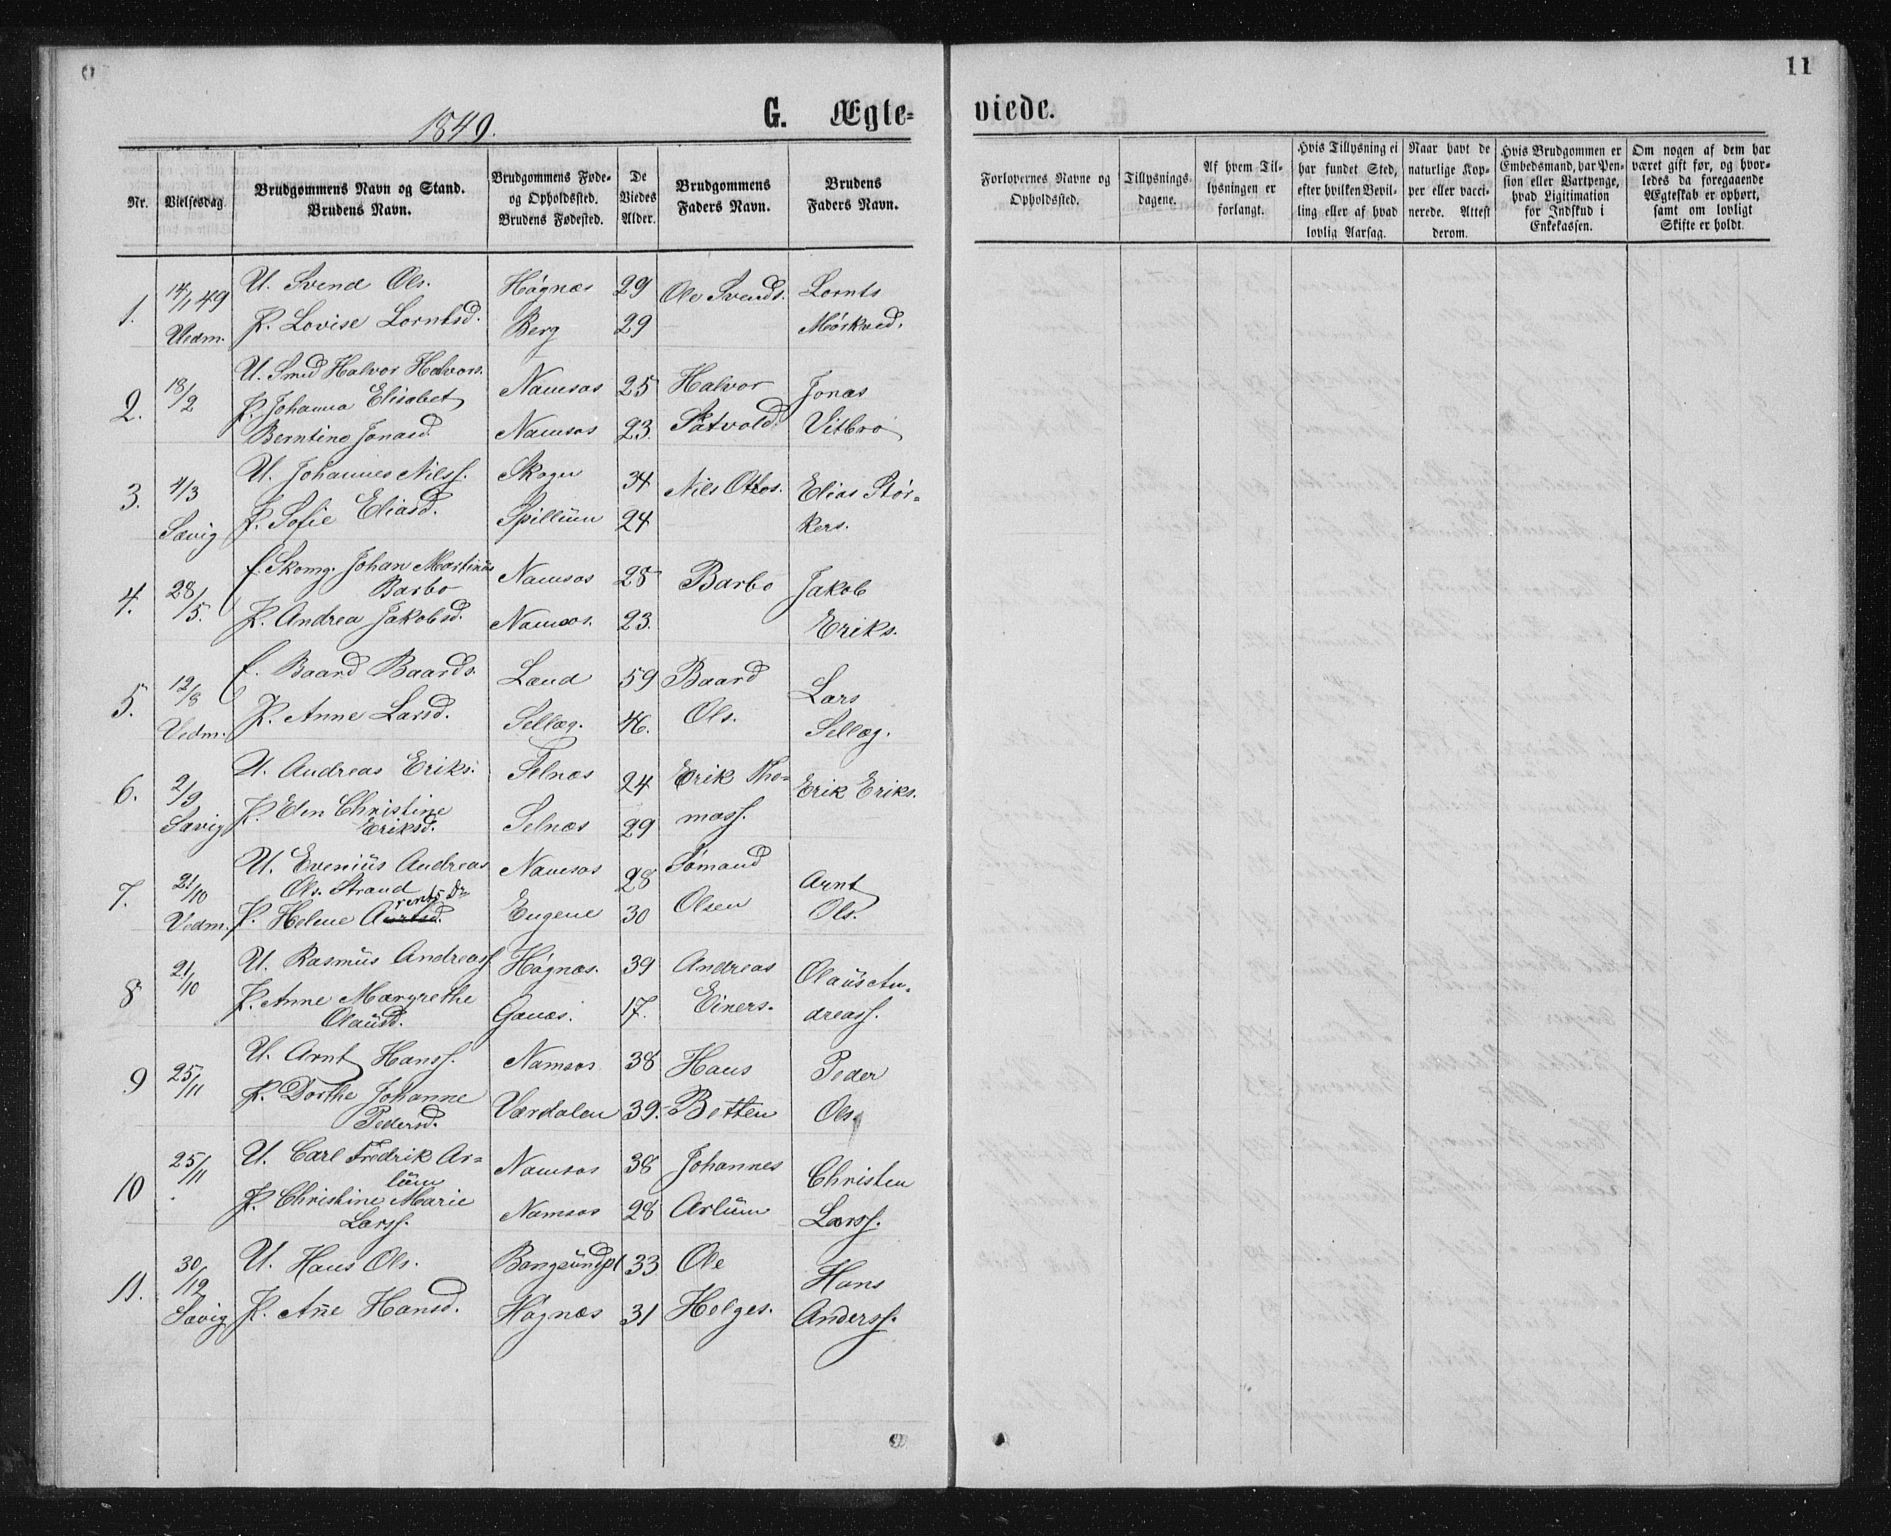 11
1849.
G. Ægte-
viede.
Nr.
Vielsesdag.
Brudgommens Navn og Stand.
Brudens Navn.
Brudgommens Føde-
og Opholdssted.
Brudens Fødested.
De
Viedes
Alder.
Brudgommens
Faders Navn.
Brudens
Faders Navn.
Forlovernes Navne og
Opholdssted.
Tillysnings-
dagene.
Af hvem Til-
lysningen er
forlangt.
Hvis Tillysning ei
har fundet Sted,
efter hvilken Bevil-
ling eller af hvad
lovlig Aarsag.
Naar havt de
naturlige Kop-
per eller vacci-
nerede. Attest
derom.
Hvis Brudgommen er
Embedsmand, har Pen-
sion eller Vartpenge,
hvad Ligitimation
for Indskud i
Enkekassen.
Om nogen af dem har
været gift før, og hvor-
ledes da foregaaende
Ægteskab er ophørt,
samt om lovligt
Skifte er holdt.
1. 14/1 49 U. Svend Ols. Høgnæs 29 Ole Svends. Lornts
Vedm. P. Lovise Lorntsd. Berg 29 Mørkved.
2. 18/2 U. Smed Halvor Halvors. Namsos 25 Halvor Jonas
P. Johanna Elisabet
Berntine Jonasd. Namsos 23. Satvold. Vitbro
3. 4/3 U. Johannes Nilss. Skogn 34 Nils Ottos. Elias Stør-
Sævig P. Sofie Eliasd. Spillum 24 kers.
4. 28/5. f. Skomg. Johan Martinus
Barbo Namsos 25 Barbo Jakob
P. Andrea Jakobsd. Namsos. 23. Eriks.
5. 12/8 f. Baard Baards. Laud 59 Baard Lars
Vedm. P. Anne Larsd. Sellæg. 46. Ols. Sellæg.
6. 2/9 U. Andreas Eriks. Selnæs 24 Erik Tho- Erik Eriks.
Sævig P. Elen Christine
Eriksd. Selnæs 29 mass.
7. 21/10 U. Evenius Andreas
Ols. Strand Namsos 28 Sømand Arnt
Vedm. P. Helene A rents Dr Eugene 30 Olsen Ols.
8 21/10 U. Rasmus Andreass. Høgnæs. 39 Andreas Olaus An-
P. Anne Margrethe
Olausd. Ganæs. 17. Einers. dreass.
9 25/11 U. Arnt Hanss. Namsos 38 Hans Peder
P. Dorthe Johanne
Pedersd. Værdalen 39. Betten Ols.
10 25/11 U. Carl Fredrik Ar-
lüm Namsos 38 Johannes Christen
P. Christine Marie
Larss. Namsos 28 Arlüm Larss.
11. 30/12 U. Hans Ols. Bangsundpl 33 Ole Hans
Sævig P. Añe Hansd. Høgnæs 31 Helges. Anderss.